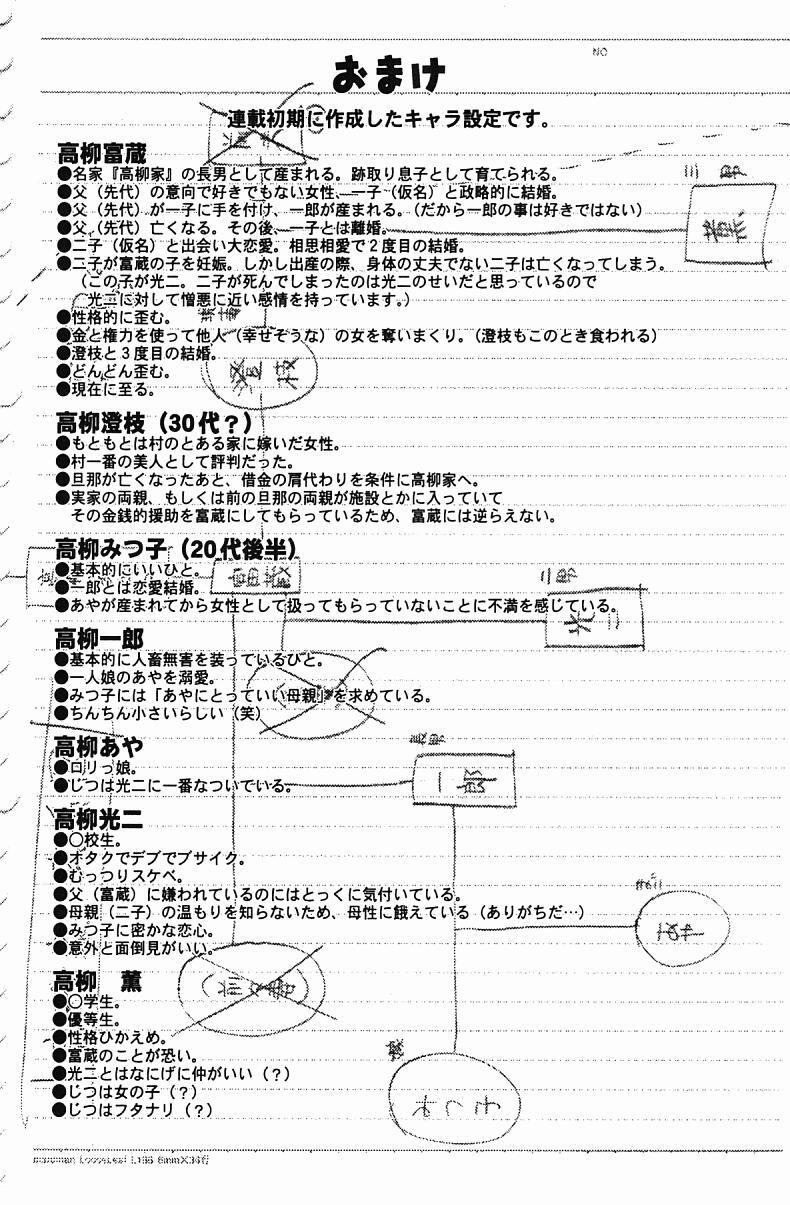 NO
おまけ
連載初期に作成したキャラ設定です。
高柳富蔵
●名家『高柳家』の長男として産まれる。跡取り息子として育てられる。
●父（先代）の意向で好きでもない女性、一子（仮名）と政略的に結婚。
●父（先代）が一子に手を付け、一郎が産まれる。（だから一郎の事は好きではない）
●父（先代）亡くなる。その後、一子とは離婚。
●二子（仮名）と出会い大恋愛。相思相愛で２度目の結婚。
●二子が富蔵の子を妊娠。しかし出産の際、身体の丈夫でない二子は亡くなってしまう。
（この子が光二。二子が死んでしまったのは光二のせいだと思っているので
光二に対して憎悪に近い感情を持っています。）
●性格的に歪む。
●金と権力を使って他人（幸せそうな）の女を奪いまくり。（澄枝もこのとき食われる）
●澄枝と３度目の結婚。
●どんどん歪む。
●現在に至る。
高柳澄枝（30代？）
●もともとは村のとある家に嫁いだ女性。
●村一番の美人として評判だった。
●旦那が亡くなったあと、借金の肩代わりを条件に高柳家へ。
●実家の両親、もしくは前の旦那の両親が施設とかに入っていて
その金銭的援助を富蔵にしてもらっているため、富蔵には逆らえない。
高柳みつ子（20代後半）
●基本的にいいひと。
●一郎とは恋愛結婚。
●あやが産まれてから女性として扱ってもらっていないことに不満を感じている。
高柳一郎
●基本的に人畜無害を装っているひと。
●一人娘のあやを溺愛。
●みつ子には「あやにとっていい母親」を求めている。
●ちんちん小さいらしい（笑）
高柳あや
●ロリっ娘。
●じつは光二に一番なついている。
高柳光二
●〇校生。
●オタクでデブでブサイク。
●むっつりスケベ。
●父（富蔵）に嫌われているのにはとっくに気付いている。
●母親（二子）の温もりを知らないため、母性に餓えている（ありがちだ…）
●みつ子に密かな恋心。
●意外と面倒見がいい。
高柳　薫
●〇学生。
●優等生。
●性格ひかえめ。
●富蔵のことが恐い。
●光二とはなにげに仲がいい（？）
●じつは女の子（？）
●じつはフタナリ（？）
三郎
薫
澄枝
富蔵
二郎
光二
長男
一郎
あや
みつ子